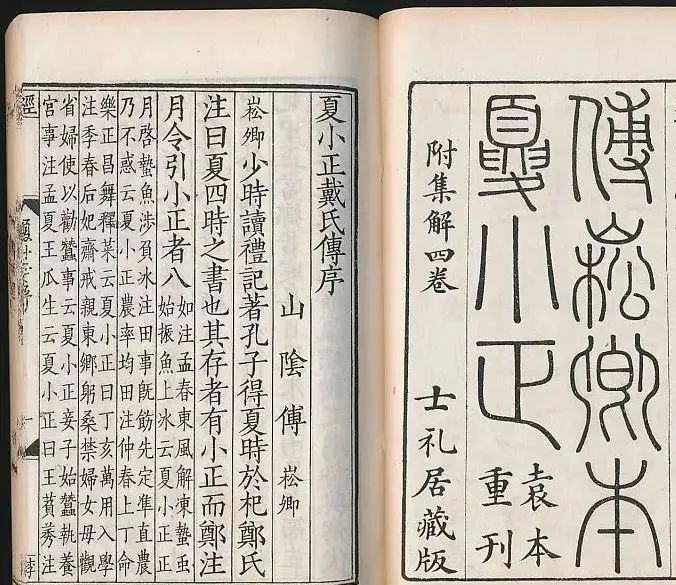 傅崧卿本
夏小正
袁本
重刊
附集解四卷
士礼居藏版
夏小正戴氏傳序
山陰傅崧卿
崧卿少時讀禮記著孔子得夏時於杞鄭氏
注曰夏四時之書也其存者有小正而鄭注
月令引小正者八
如注孟春東風解凍蟄䖝
始振魚上氷云夏小正正
月啓蟄魚涉負氷注田事旣飭先定準直農
乃不惑云夏小正農率均田注仲春上丁命
樂正昌舞釋菜云夏小正曰丁亥萬用入學
注季春后妃齋戒親東鄉躬桑禁婦女毋觀
省婦使以勸蠶事云夏小正妾子始蠶執養
宮事注孟夏王瓜生云夏小正曰王萯莠注